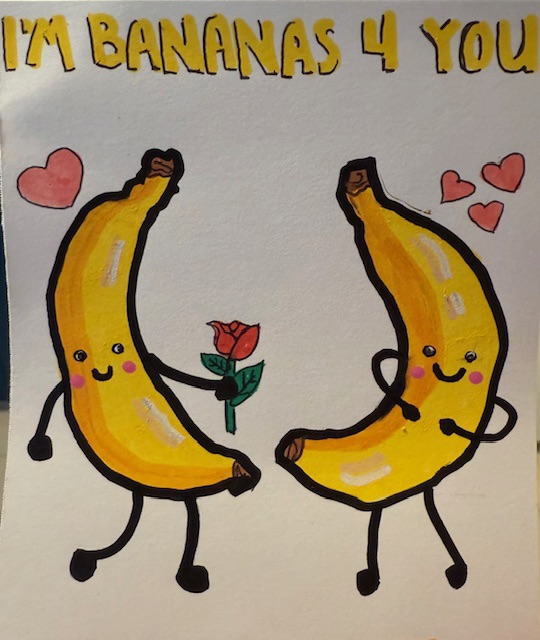 I'M BANANAS 4 YOU